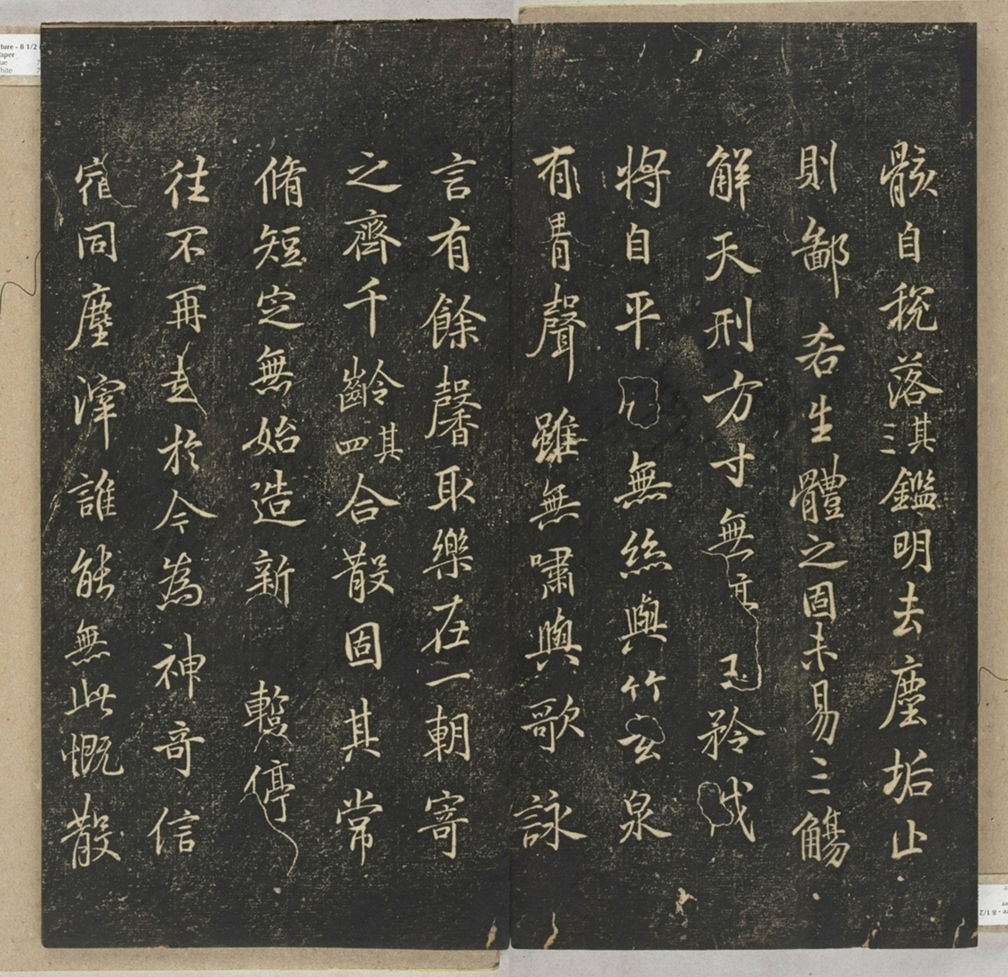 骸自稅落其三鑑明去塵垢止
則鄙吝生體之固未易三觴
解天刑方寸無矜伐
將自平無絲與竹玄泉
有聲雖無嘯與歌詠
言有餘馨取樂在一朝寄
之齊千齡其四合散固其常
脩短定無始造新暫停
往不再起於今為神奇信
宿同塵滓誰能無此慨散